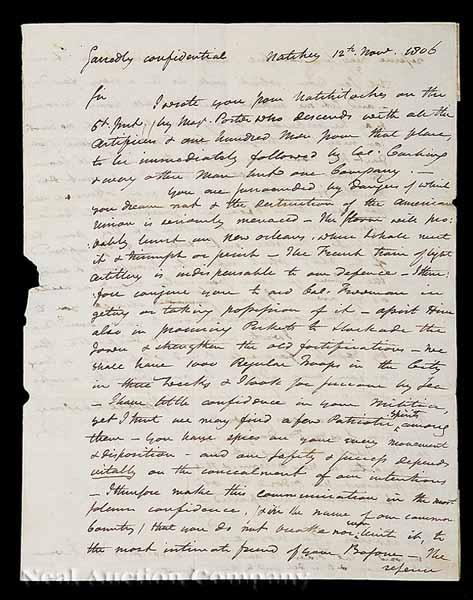 Sacredly confidential Natchez 12th Novr. 1806
Sir I wrote you from Natchitoches on the
6t. Inst. / by Majr. Porter who descends with all the
Artificers & one hundred Men from that place,
to be immediately followed by Col. Cushing
& every other Man but one Company. —
You are surrounded by dangers of which
you dream not & the destruction of the American
Union is seriously menaced — The Storm will pro-
bably burst in New orleans, where I shall meet
it & triumph or perish — The French train of
Artillery is indispensable to our Defence — I there-
fore conjure you to aid Col. Freeman in
getting or taking possession of it — assist Him
also in procuring Pickets to Stockade the
Town & strengthen the old fortifications — We
shall have 1000 Regular Troops in the City
in three weeks & I look for succour by Sea
— I have little confidence in your Militia,
yet I trust we may find a few Patriotic Spirits among
them — You have spies on your every movement
& disposition — and our safety & success depends
vitally on the concealment of our intentions
— I therefore make this communication in the most
solemn confidence, & in the name of our common
Country / that you do not breathe nor with it, to
the most intimate friend of your Bosom — The
defence
Neal Auction Company